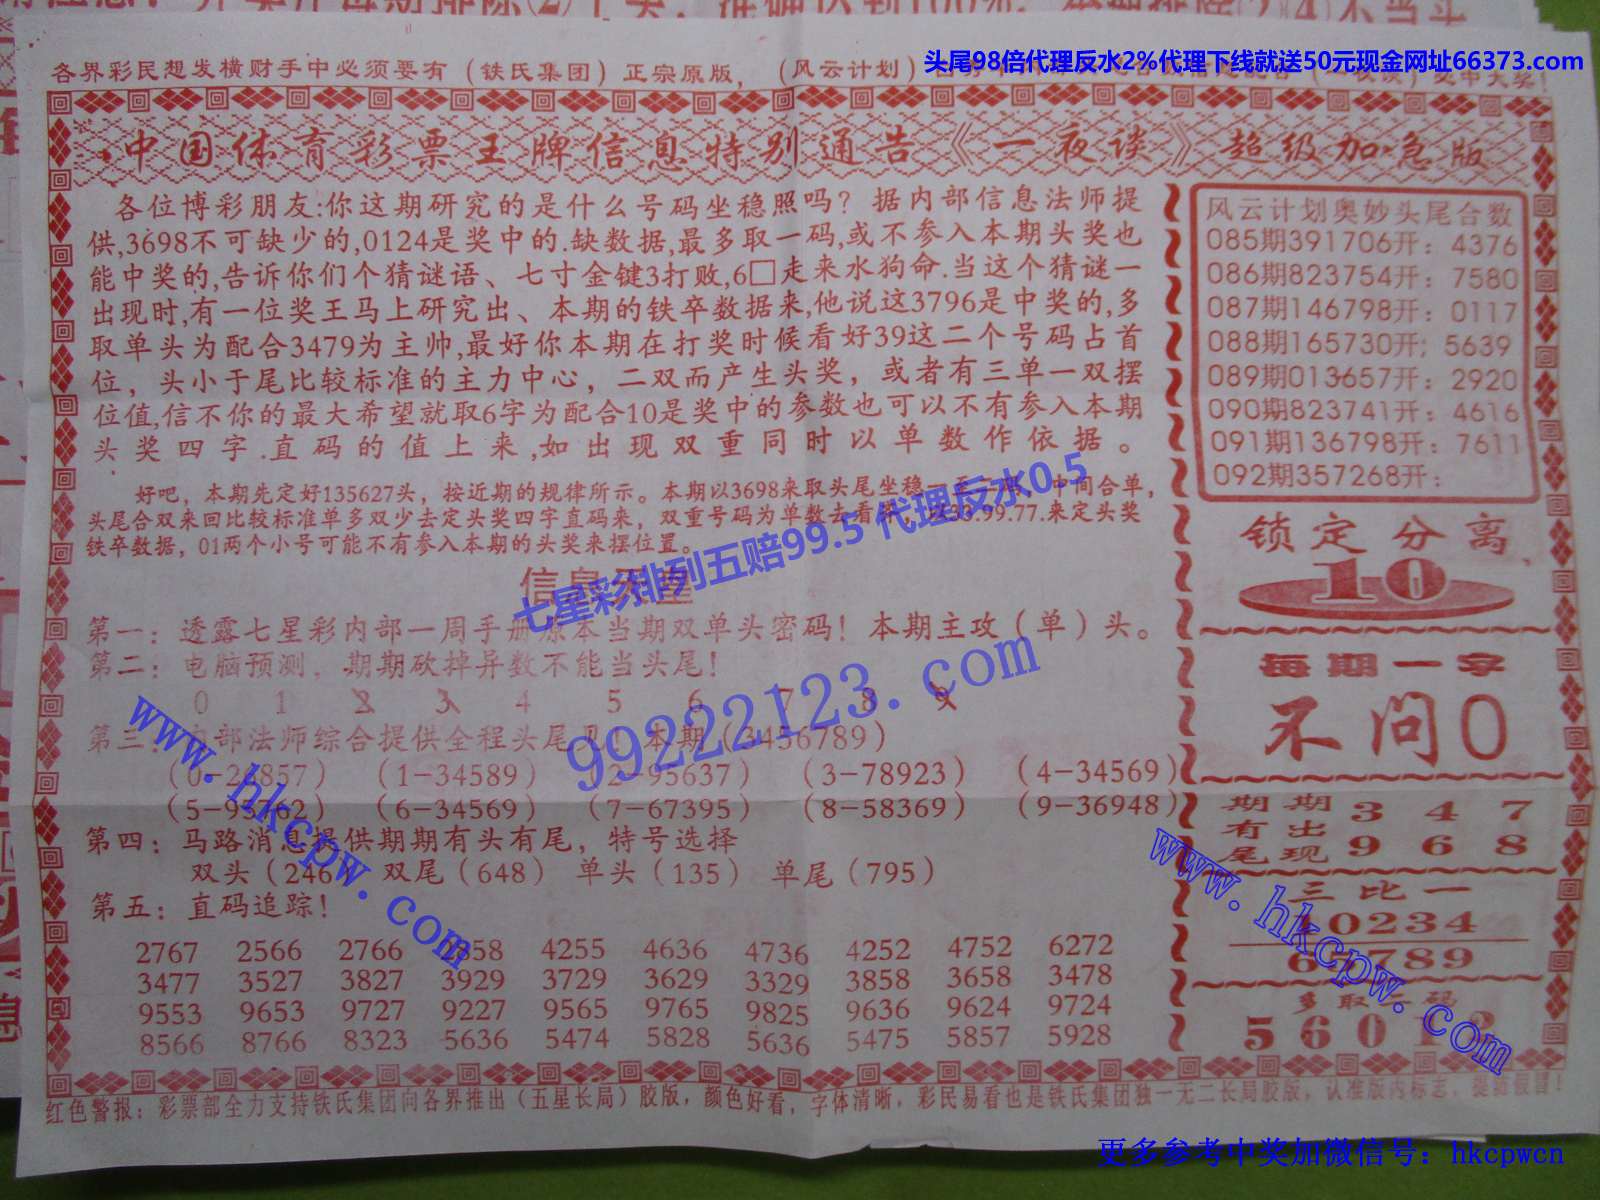 头尾98倍代理反水2%代理下线就送50元现金网址66373.com
各界彩民想发横财手中必须要有（铁氏集团）正宗原版，（风云计划）
中国体育彩票王牌信息特别通告《一夜谈》超级加急版
各位博彩朋友:你这期研究的是什么号码坐稳照吗？据内部信息法师提
供,3698不可缺少的,0124是奖中的.缺数据,最多取一码,或不参入本期头奖也
能中奖的,告诉你们个猜谜语、七寸金键3打败,6□走来水狗命.当这个猜谜一
出现时,有一位奖王马上研究出、本期的铁卒数据来,他说这3796是中奖的,多
取单头为配合3479为主帅,最好你本期在打奖时候看好39这二个号码占首
位，头小于尾比较标准的主力中心，二双而产生头奖，或者有三单一双摆
位值,信不你的最大希望就取6字为配合10是奖中的参数也可以不有参入本期
头奖四字.直码的值上来,如出现双重同时以单数作依据。
好吧，本期先定好135627头，按近期的规律所示。本期以3698来取头尾坐稳 中间合单，
头尾合双来回比较标准单多双少去定头奖四字直码来，双重号码为单数去看 33.99.77.来定头奖
铁卒数据，01两个小号可能不有参入本期的头奖来摆位置。
信息
第一：透露七星彩内部一周手册原本当期双单头密码！本期主攻（单）头。
第二：电脑预测，期期砍掉异数不能当头尾！
0 1 2 3 4 5 6 7 8 9
第三：内部法师综合提供全程头尾 本期（3456789）
（0-2 857）（1-34589）（2-95637）（3-78923）（4-34569）
（5-9 762）（6-34569）（7-67395）（8-58369）（9-36948）
第四：马路消息提供期期有头有尾，特号选择
双头（246 双尾（648）单头（135）单尾（795）
第五：直码追踪！
2767 2566 2766 2358 4255 4636 4736 4252 4752 6272
3477 3527 3827 3929 3729 3629 3329 3858 3658 3478
9553 9653 9727 9227 9565 9765 9825 9636 9624 9724
8566 8766 8323 5636 5474 5828 5636 5475 5857 5928
风云计划奥妙头尾合数
085期391706开：4376
086期823754开：7580
087期146798开：0117
088期165730开；5639
089期013657开：2920
090期823741开：4616
091期136798开：7611
092期357268开：
锁定分离
10
每期一字
不问0
期期 3 4 7
有出
尾现 9 6 8
三比一
10234
6 789
多取 码
5 6 0 1
红色警报：彩票部全力支持铁氏集团向各界推出（五星长局）胶版，颜色好看，字体清晰，彩民易看也是铁氏集团独一无二长局胶版，认准版内标志，提防假冒！
七星彩排列五赔99.5 代理反水0.5
99222123.com
www.hkcpw.com
www.hkcpw.com
更多参考中奖加微信号：hkcpwcn